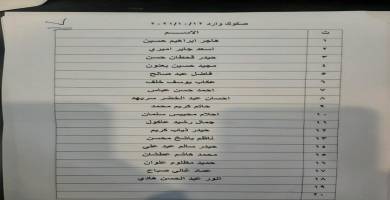 صكوك وارد ٢٠٢١/١٠/١٢
ت الاسم
١ هاجر ابراهيم حسين
٢ اسعد جابر اميري
٣ حيدر قحطان حسن
٤ مجيد حسين بعنون
٥ فاضل عبد صالح
٦ عكاب يوسف خلف
٧ احمد حسن عباس
٨ احسان عبد الخضر سريهد
٩ حاتم كريم محمد
١٠ احلام محيبس سلمان
١١ جمال رشيد عاكول
١٢ حيدر ذياب كريم
١٣ ناظم باشخ محسن
١٤ حيدر سالم عبد علي
١٥ محمد هاشم عطشان
١٦ حميد مظلوم علوان
١٧ عماد غالي صباح
١٨ انور عبد الحسن هادي
١٩
٢٠